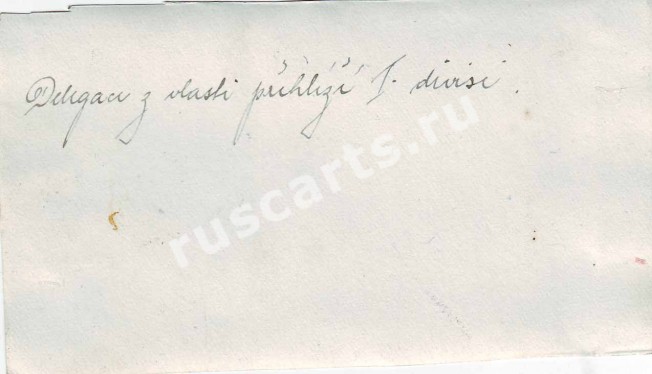 Delegace z vlasti přihlíží I. divisi.
ruscarts.ru